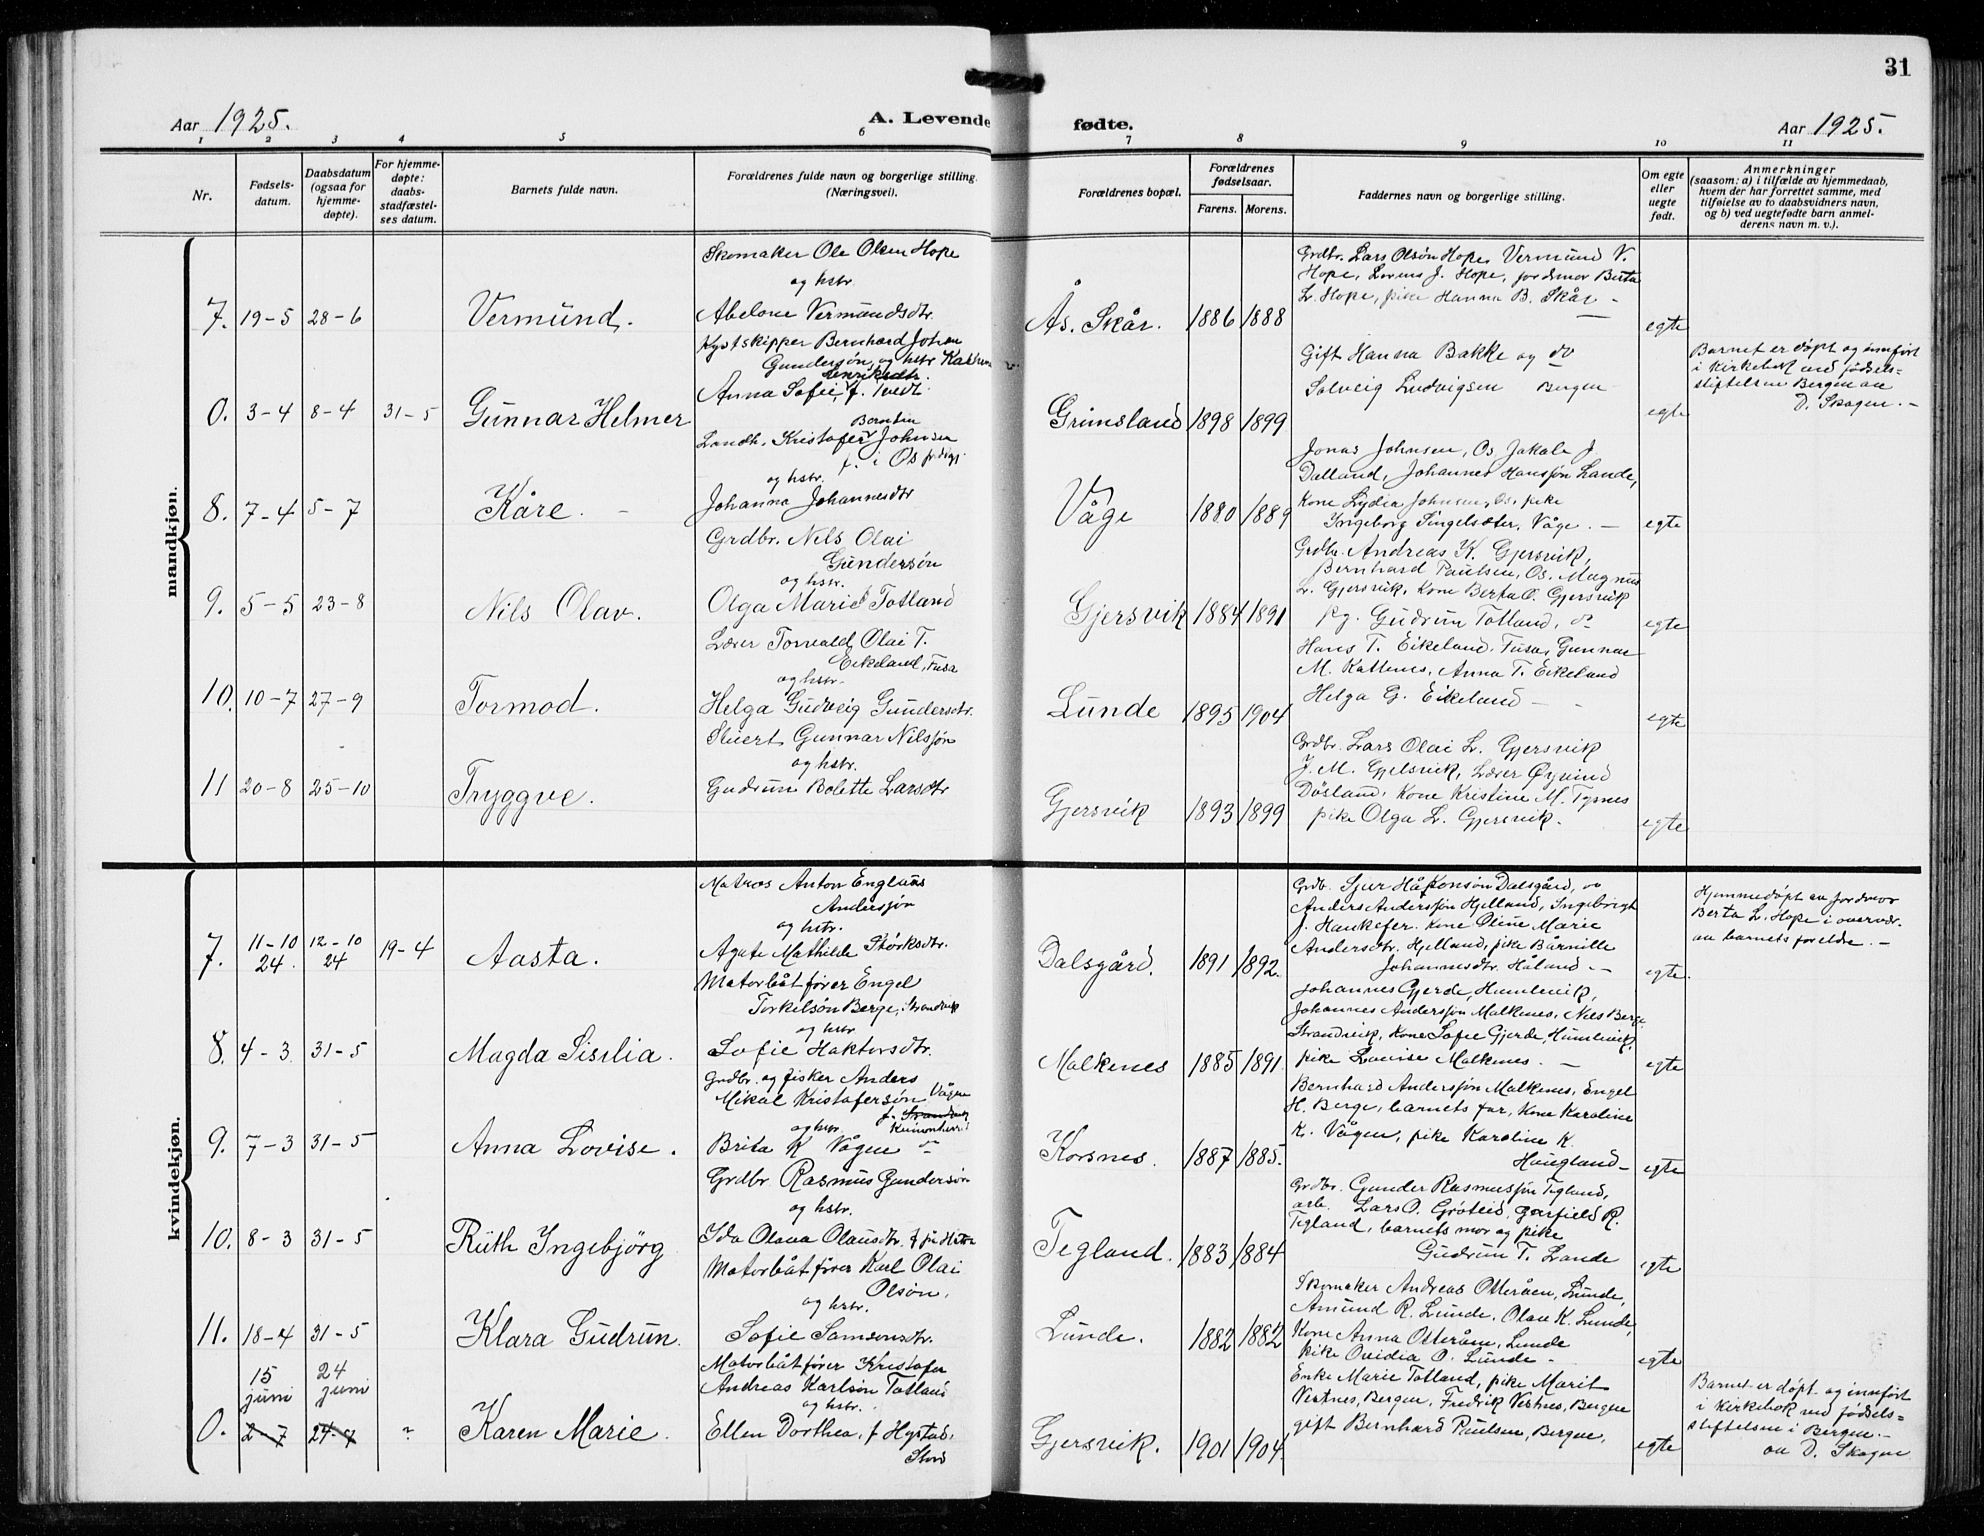 31
Aar 1925.
A. Levende fødte.
Aar 1925.
1 2 3 4 5 6 7 8 9 10 11
Nr.
Fødselsdatum.
Daabsdatum (ogsaa for hjemmedøpte).
For hjemmedøpte: daabsstadfæstelses datum.
Barnets fulde navn.
Forældrenes fulde navn og borgerlige stilling. (Næringsvei).
Forældrenes bopæl.
Forældrenes fødselsaar.
Farens. Morens.
Faddernes navn og borgerlige stilling.
Om egte eller uegte født.
Anmerkninger
(saasom: a) i tilfælde av hjemmedaab,
hvem der har forrettet samme, med
tilføielse av to daabsvidners navn,
og b) ved uegtefødte barn anmel-
derens navn m. v.).
mandkjøn.
7. 19-5 28-6 Vermund.
Skomaker Ole Olsen Hope
og hstr.
Abelone Vermundsdtr.
Ås. Skår. 1886 1888
Grdbr. Lars Olsøn Hope, Vermund V.
Hope, Lorens J. Hope, jordmor Berta
L. Hope, pike Hanna B. Skår -
egte
0. 3-4 8-4 31-5 Gunnar Helmer
Kystskipper Bernhard Johan
Gundersøn og hstr
Anna Sofie, f. Tvedt.
Grimsland 1898 1899
Gift Hanna Bakke og do
Solveig Ludvigsen Bergen
egte
Barnet er døpt og innført
i kirkebok ved fødsels=
stiftelsen Bergen av
D. Skagen. -
8. 7-4 5-7 Kåre. -
Berntin
Landh. Kristofer Johnsen
f. i Os
og hstr.
Johanna Johannesdtr
Våge 1880 1889
Jonas Johnsen, Os, Jakob J.
Dalland, Johannes Hansøn Lande,
Kone Lydia Johnsen, Os, pike
Ingeborg Singelsæter, Våge. -
egte
9. 5-5 23-8 Nils Olav.
Grdbr. Nils Olai
Gundersøn
og hstr.
Olga Marie Totland
Gjersvik 1884 1891
Grdbr. Andreas K. Gjersvik,
Bernhard Paulsen, Os. Magnus
L. Gjersvik, Kone Berta O. Gjersvik
pg. Gudrun Totland, do
egte
10. 10-7 27-9 Tormod.
Lærer Torvald Olai T.
Eikeland, Fusa
og hstr.
Helga Gudveig Gundersdtr.
Lunde 1895 1904
Hans T. Eikeland, Fusa, Gunnar
M. Kattnes, Anna T. Eikeland
Helga G. Eikeland -
egte
11 20-8 25-10 Tryggve.
Stuert Gunnar Nilssøn
og hstr.
Gudrun Bolette Larsdtr
Gjersvik 1893 1899
Grdbr. Lars Olai L. Gjersvik
J. M. Gjelsvik, Lærer Øyvind
Døsland, Kone Kristine M. Tysnes
pike Olga L. Gjersvik.
egte
kvindekjøn.
7. 11-10 24. 12-10 24 19-4 Aasta.
Matros Anton Englaus
Anderssøn
og hstr.
Agate Mathilde Størksdtr.
Dalsgård. 1891 1892.
Grdb. Sjur Håkonsøn Dalsgård, do
Anders Anderssøn Hjelland, Ingebrigt
J. Haukefer. Kone Oline Marie
Andersdtr. Hjelland, pike Bårnille
Johannesdtr. Håland -
egte.
Hjemmedøpt av jordmor
Berta L. Hope i overvær.
av barnets foreldre. -
8. 4-3 31-5 Magda Sisilia.
Motorbåtfører Engel
Torkelsøn Berge, Strandvik
og hstr
Sofie Haktorsdtr.
Malkenes 1885 1891
Johannes Gjerde, Humlevik,
Johannes Anderssøn Malkenes, Nils Berge
Strandvik, Kone Sofie Gjerde, Humlevik,
pike Lovise Malkenes. -
egte
9. 7-3 31-5 Anna Lovise.
Grdbr. og fisker Anders
Mikal Kristofersøn Vågen
og hstr.
Brita K Vågen do
Korsnes. 1887 1885.
Bernhard Anderssøn Malkenes, Engel
H. Berge, barnets far, Kone Karoline
K. Vågen, pike Karoline K.
Haugland -
egte
10. 8-3 31-5 Ruth Ingebjørg
Grdbr Rasmus Gundersøn
og hstr.
Ida Olava Olausdtr.
Tegland. 1883 1884
Grdbr. Gunder Rasmussøn Tegland,
arb. Lars O. Grøteid, Garfield R.
Tegland, barnets mor og pike
Gudrun T. Lande
egte
11. 18-4 31-5 Klara Gudrun.
Motorbåtfører Karl Olai
Olsøn.
og hstr.
Sofie Samsonsdtr.
Lunde. 1882 1882
Skomaker Andreas Otteråen, Lunde,
Amund R. Lunde, Olav K. Lunde,
Kone Anna Otteråen, Lunde
pike Ovidia O. Lunde -
egte
15 juni 24 juni
0. 2-7 24-7 Karen Marie.
Motorbåtfører Kristofer
Andreas Karlsøn Totland
og hstr.
Ellen Dorthea, f Hystad,
Stord
Gjersvik. 1901 1904.
Enke Marie Totland, pike Marit
Vestnes, Bergen, Fredrik Vestnes, Bergen
gift Bernhard Paulsen, Bergen,
egte
Barnet er døpt og innført
i kirkebok ved fødsels=
stiftelsen i Bergen. -
av D. Skagen